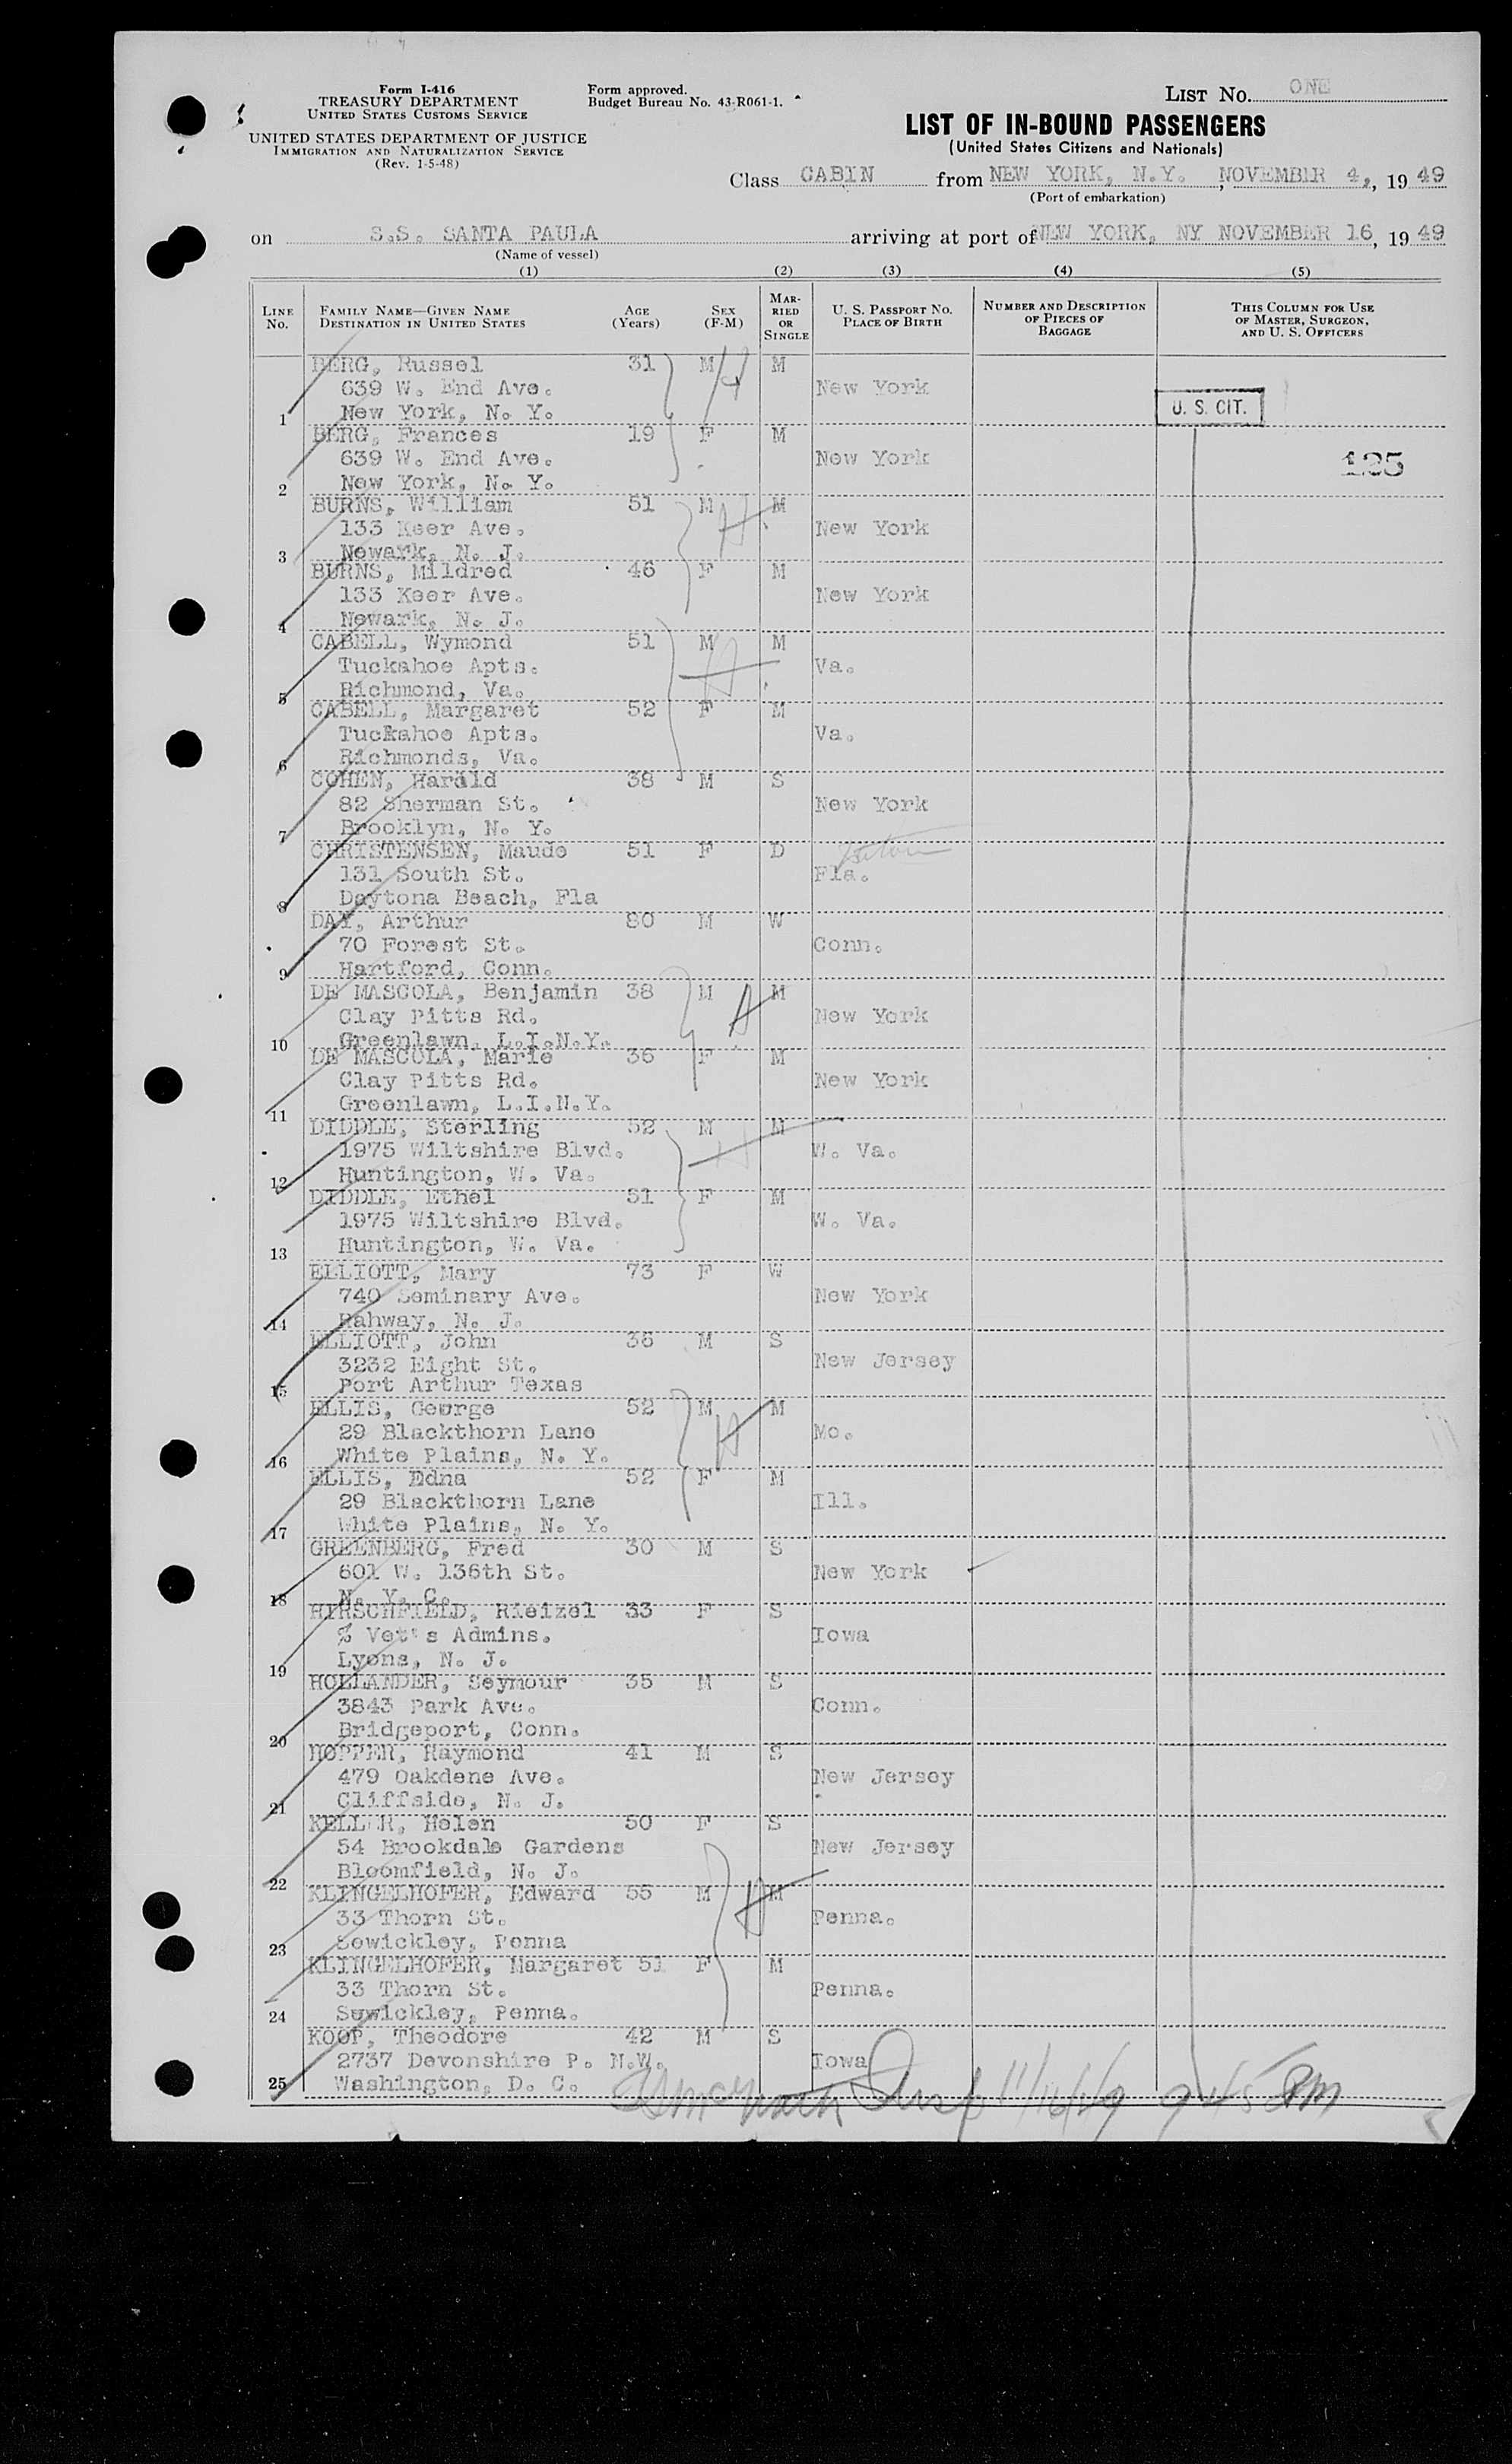 Form I-416
TREASURY DEPARTMENT
UNITED STATES CUSTOMS SERVICE
UNITED STATES DEPARTMENT OF JUSTICE
IMMIGRATION AND NATURALIZATION SERVICE
(Rev. 1-5-48)
Form approved.
Budget Bureau No. 43-R061-1.
LIST No. ONE
LIST OF IN-BOUND PASSENGERS
(United States Citizens and Nationals)
Class CABIN from NEW YORK, N.Y., NOVEMBER 4, 1949
(Port of embarkation)
on S.S. SANTA PAULA arriving at port of NEW YORK, NY NOVEMBER 16, 1949
(Name of vessel)
(1) (2) (3) (4) (5)
LINE No.
FAMILY NAME—GIVEN NAME
DESTINATION IN UNITED STATES
AGE (Years)
SEX (F-M)
MARRIED OR SINGLE
U. S. PASSPORT No.
PLACE OF BIRTH
NUMBER AND DESCRIPTION OF PIECES OF BAGGAGE
THIS COLUMN FOR USE OF MASTER, SURGEON, AND U. S. OFFICERS
BERG, Russel 31 M M
639 W. End Ave. New York
1 New York, N. Y. U. S. CIT.
BERG, Frances 19 F M
639 W. End Ave. New York 125
2 New York, N. Y.
BURNS, William 51 M M
133 Keer Ave. New York
3 Newark, N. J.
BURNS, Mildred 46 F M
133 Keer Ave. New York
4 Newark, N. J.
CABELL, Wymond 51 M M
Tuckahoe Apts. Va.
5 Richmond, Va.
CABELL, Margaret 52 F M
Tuckahoe Apts. Va.
6 Richmonds, Va.
COHEN, Harald 38 M S
82 Sherman St. New York
7 Brooklyn, N. Y.
CHRISTENSEN, Maude 51 F D
131 South St. Fla.
8 Daytona Beach, Fla
DAY, Arthur 80 M W
70 Forest St. Conn.
9 Hartford, Conn.
DE MASCOLA, Benjamin 38 M M
Clay Pitts Rd. New York
10 Greenlawn, L.I.N.Y.
DE MASCOLA, Marie 36 F M
Clay Pitts Rd. New York
11 Greenlawn, L.I.N.Y.
DIDDLE, Sterling 52 M M
1975 Wiltshire Blvd. W. Va.
12 Huntington, W. Va.
DIDDLE, Ethel 51 F M
1975 Wiltshire Blvd. W. Va.
13 Huntington, W. Va.
ELLIOTT, Mary 73 F W
740 Seminary Ave. New York
14 Rahway, N. J.
ELLIOTT, John 36 M S
3232 Eight St. New Jersey
15 Port Arthur Texas
ELLIS, George 52 M M
29 Blackthorn Lane Mo.
16 White Plains, N. Y.
ELLIS, Edna 52 F M
29 Blackthorn Lane Ill.
17 White Plains, N. Y.
GREENBERG, Fred 30 M S
601 W. 136th St. New York
18 N. Y. C.
HIRSCHFIELD, Rieizel 33 F S
% Vet's Admins. Iowa
19 Lyons, N. J.
HOLLANDER, Seymour 35 M S
3843 Park Ave. Conn.
20 Bridgeport, Conn.
HOPPER, Raymond 41 M S
479 Oakdene Ave. New Jersey
21 Cliffside, N. J.
KELLER, Helen 50 F S
54 Brookdale Gardens New Jersey
22 Bloomfield, N. J.
KLINGELHOFER, Edward 55 M M
33 Thorn St. Penna.
23 Sewickley, Penna
KLINGELHOFER, Margaret 51 F M
33 Thorn St. Penna.
24 Sewickley, Penna.
KOOP, Theodore 42 M S
2737 Devonshire P. N.W. Iowa
25 Washington, D. C.
Insp 11/16/49 9 45 PM